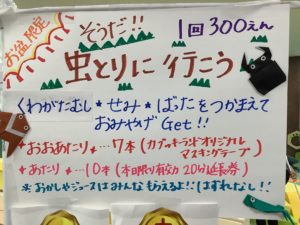 お盆限定
そうだ!!
1回300えん
虫とりに行こう
くわがたむし★せみ★ばったをつかまえて
おみやげGet!!
★おおあたり★…7本(カブッキーランドオリジナル
マスキングテープ)
★あたり★…10本(本日限り有効 20分延長券)
※おかしやジュースはみんなもらえるよ!!はずれなし!!